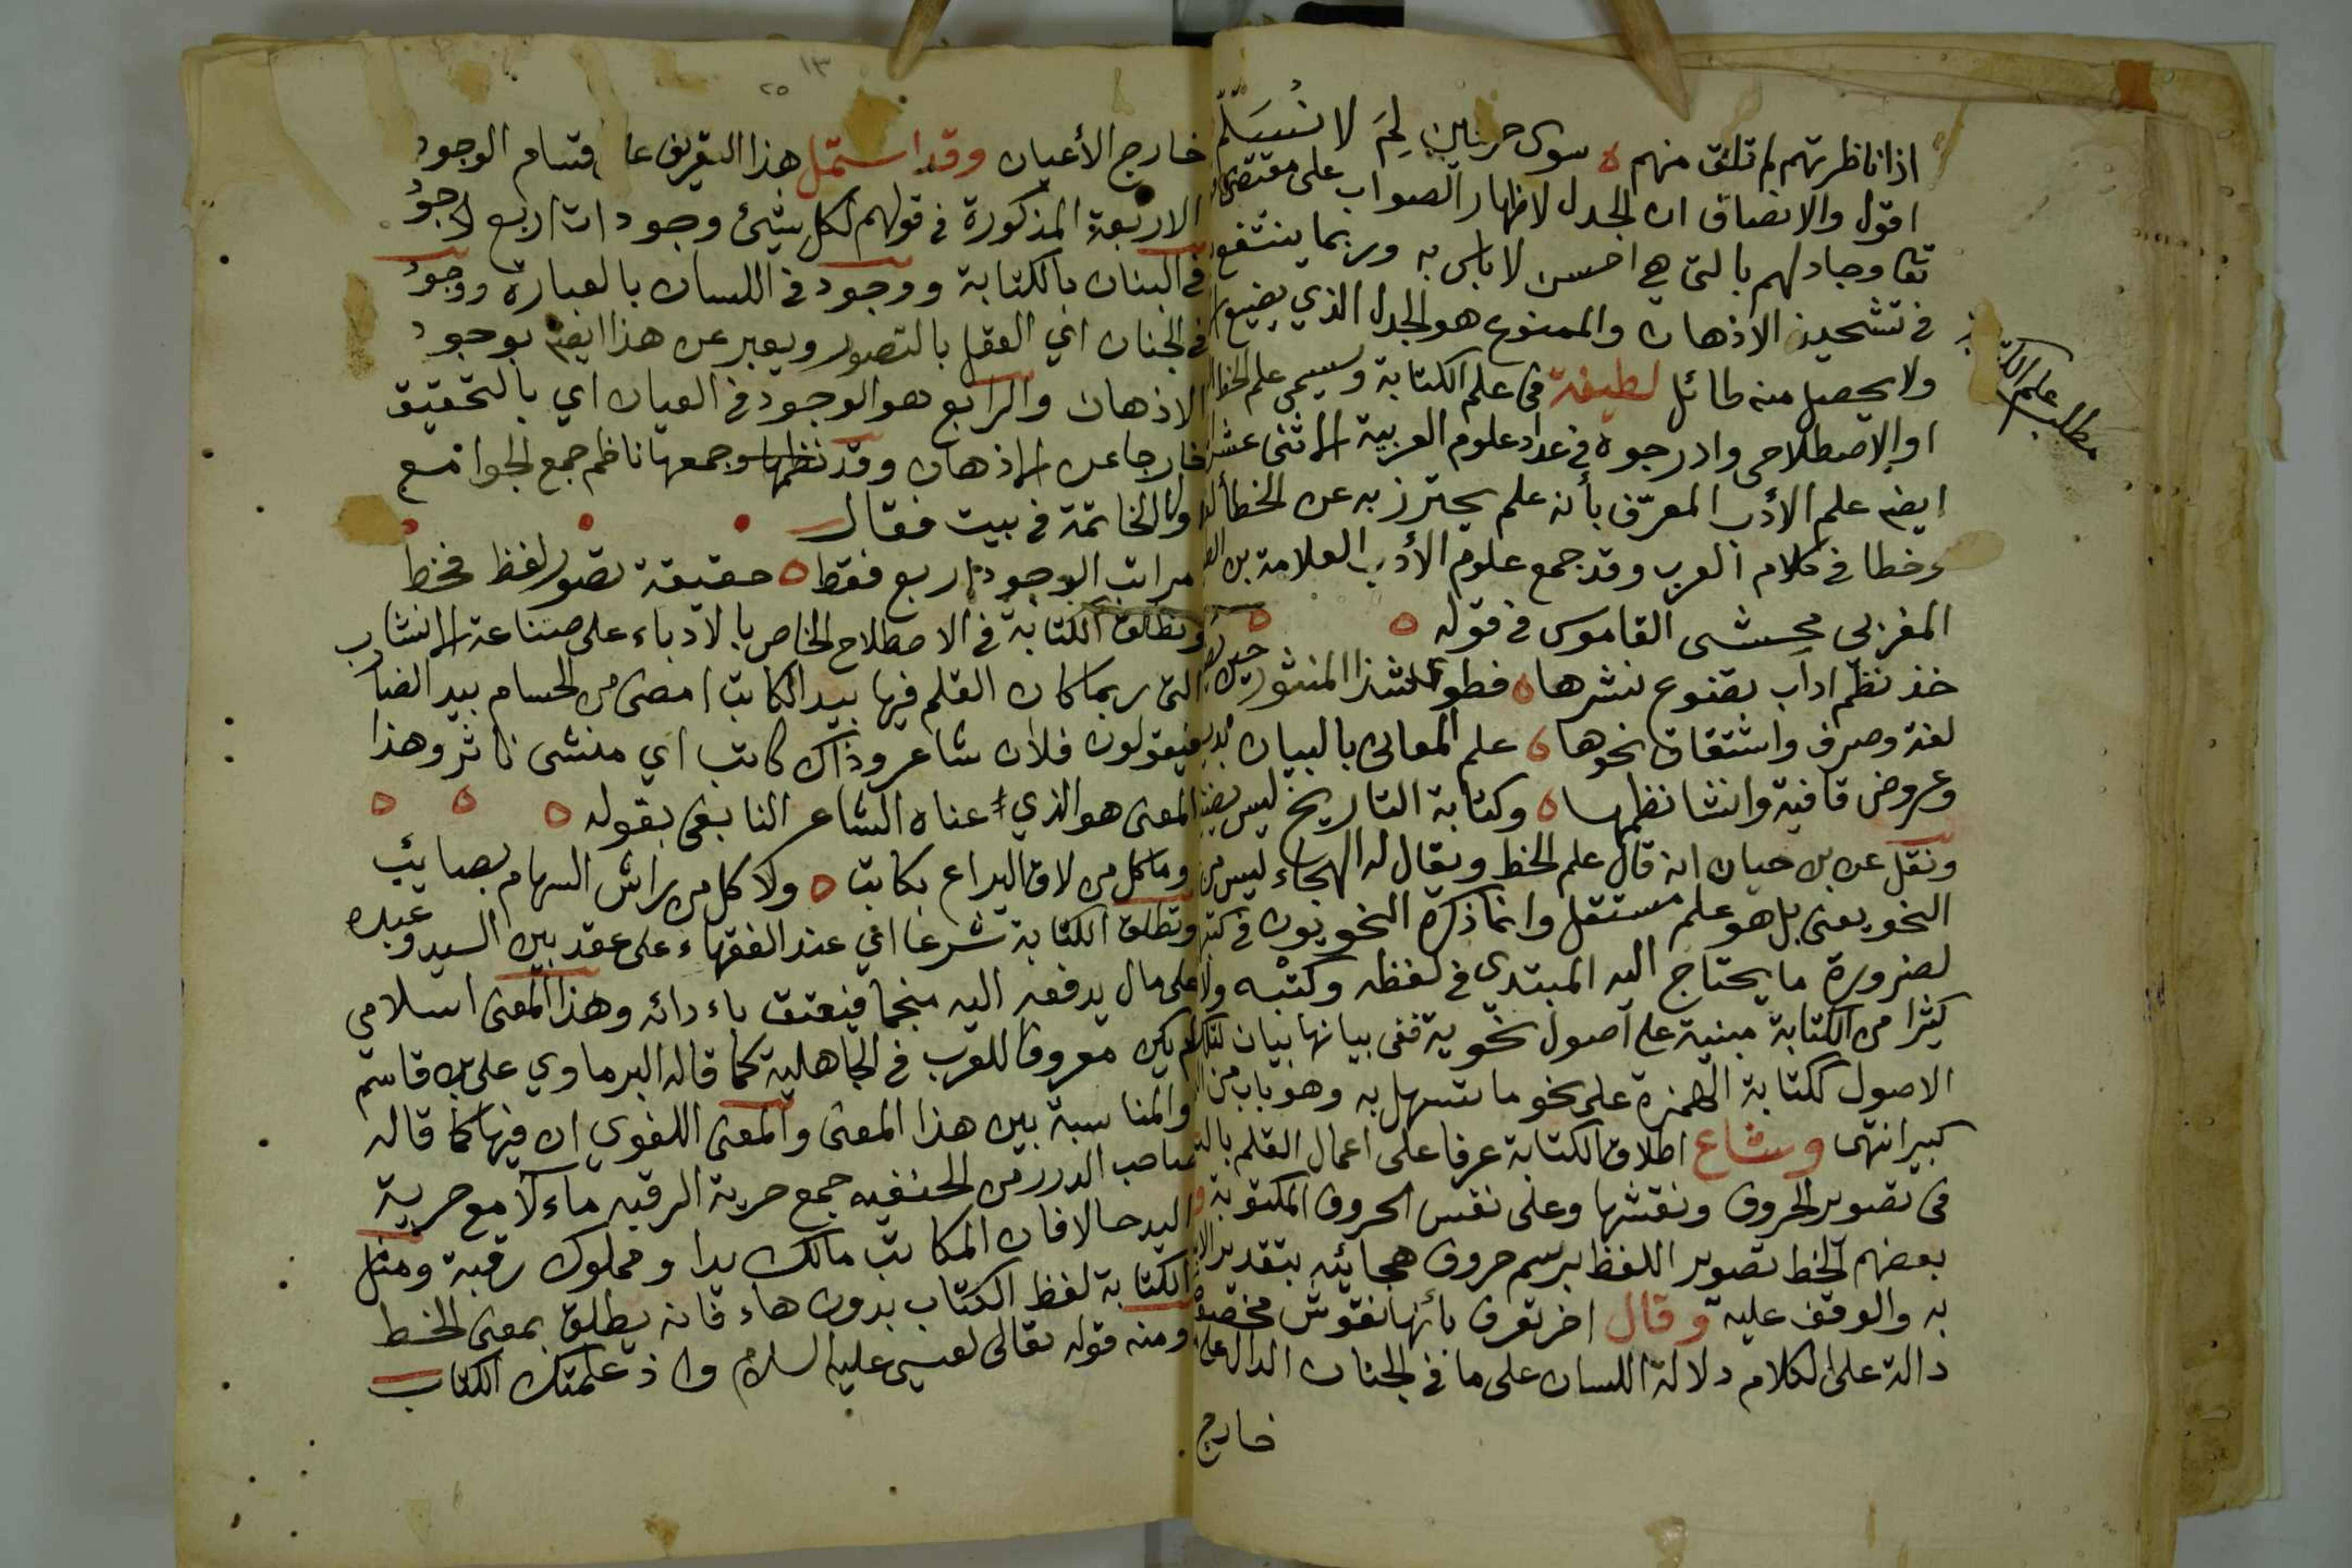 اذا ناظرتهم لم تلق منهم ه سوى حرفين لِمَ لا نُسَلّم
اقول والانصاف ان الجدل لاظهار الصواب على مقتضى
تعا وجادلهم بالتي هي احسن لا باس به وربما ينتفع
في تشحيذ الاذهان والممنوع هو الجدل الذي يضيع
ولا يحصل منه طائل لطيفة في علم الكتابة ويسمى علم الخط
مطلب علم
او الاصطلاحي وادرجوه في عداد علوم العربية الاثنى عشر
ايضا علم الأدب المعرّف بأنه علم يحترز به عن الخطأ
وخطا في كلام العرب وقد جمع علوم الأدب العلامة بن
المغربي محشى القاموس في قوله ه ه
خذ نظم اداب تضوع نشرها ه فطوى شذا المنثور حين
لغة وصرف واشتقاق نحوها ه علم المعانى بالبيان
وعروض قافية وانشا نظمها ه وكتابة التاريخ ليس
ونقل عن بن حيان انه قال علم الخط ويقال له الهجاء ليس من
النحو يعنى بل هو علم مستقل وانما ذكره النحويون في كتبهم
لضرورة ما يحتاج اليه المبتدى في لفظه وكتبه ولان
كثيرا من الكتابة مبنية على اصول نحوية ففى بيانها بيان لتلك
الاصول ككتابة الهمزة على نحو ما تسهل به وهو باب من
كبير انتهى وشاع اطلاق الكتابة عرفا على اعمال القلم باليد
فى تصوير الحروف ونقشها وعلى نفس الحروف المكتوبة و
بعضهم الخط تصوير اللفظ برسم حروف هجائيه بتقدير
به والوقف عليه وقال اخر تعرف بأنها نقوش مخصوصة
دالة على الكلام دلالة اللسان على ما في الجنان الدال على
خارج
١٣
٢٥
خارج الأعيان وقد اشتمل هذا التعريف على اقسام الوجود
الاربعة المذكورة في قولهم لكل شيئ وجودات اربع وجود
في البنان بالكتابة ووجود في اللسان بالعبارة ووجود
في الجنان اي العقل بالتصور ويعبر عن هذا ايضا بوجود
الاذهان والرابع هو الوجود في العيان اي بالتحقيق
خارجا عن الاذهان وقد نظمها وجمعها ناظم جمع الجوامع
والخاتمة في بيت فقال
مراتب الوجود اربع فقط ه حقيقة تصور لفظ فخط
وتطلق الكتابة في الاصطلاح الخاص بالادباء على صناعة الانشاء
التى ربما كان القلم فيها بيد الكاتب امضى من الحسام بيد الضارب
فيقولون فلان شاعر وذاك كاتب اي منشى ناثر وهذا
المعنى هو الذي عناه الشاعر النابغى بقوله ه ه ه
وما كل من لاق اليراع بكاتب ه ولا كل من راش السهام بصائب
وتطلق الكتابة شرعا اي عند الفقهاء على عقد بين السيد وعبده
على مال يدفعه اليه منجما فيعتق باءدائه وهذا المعنى اسلامى
لم يكن معروفا للعرب في الجاهلية كما قاله البرماوي على بن قاسم
والمناسبة بين هذا المعنى والمعنى اللغوي ان فيها كما قاله
صاحب الدرر من الحنفيه جمع حرية الرقبه ماءلا مع حرية
اليد حالا فان المكاتب مالك يدا ومملوك رقبة ومثل
الكتابة لفظ الكتاب بدون هاء فانه يطلق بمعنى الخط
ومنه قوله تعالى لعيسى عليه السلام واذ علمتك الكتاب